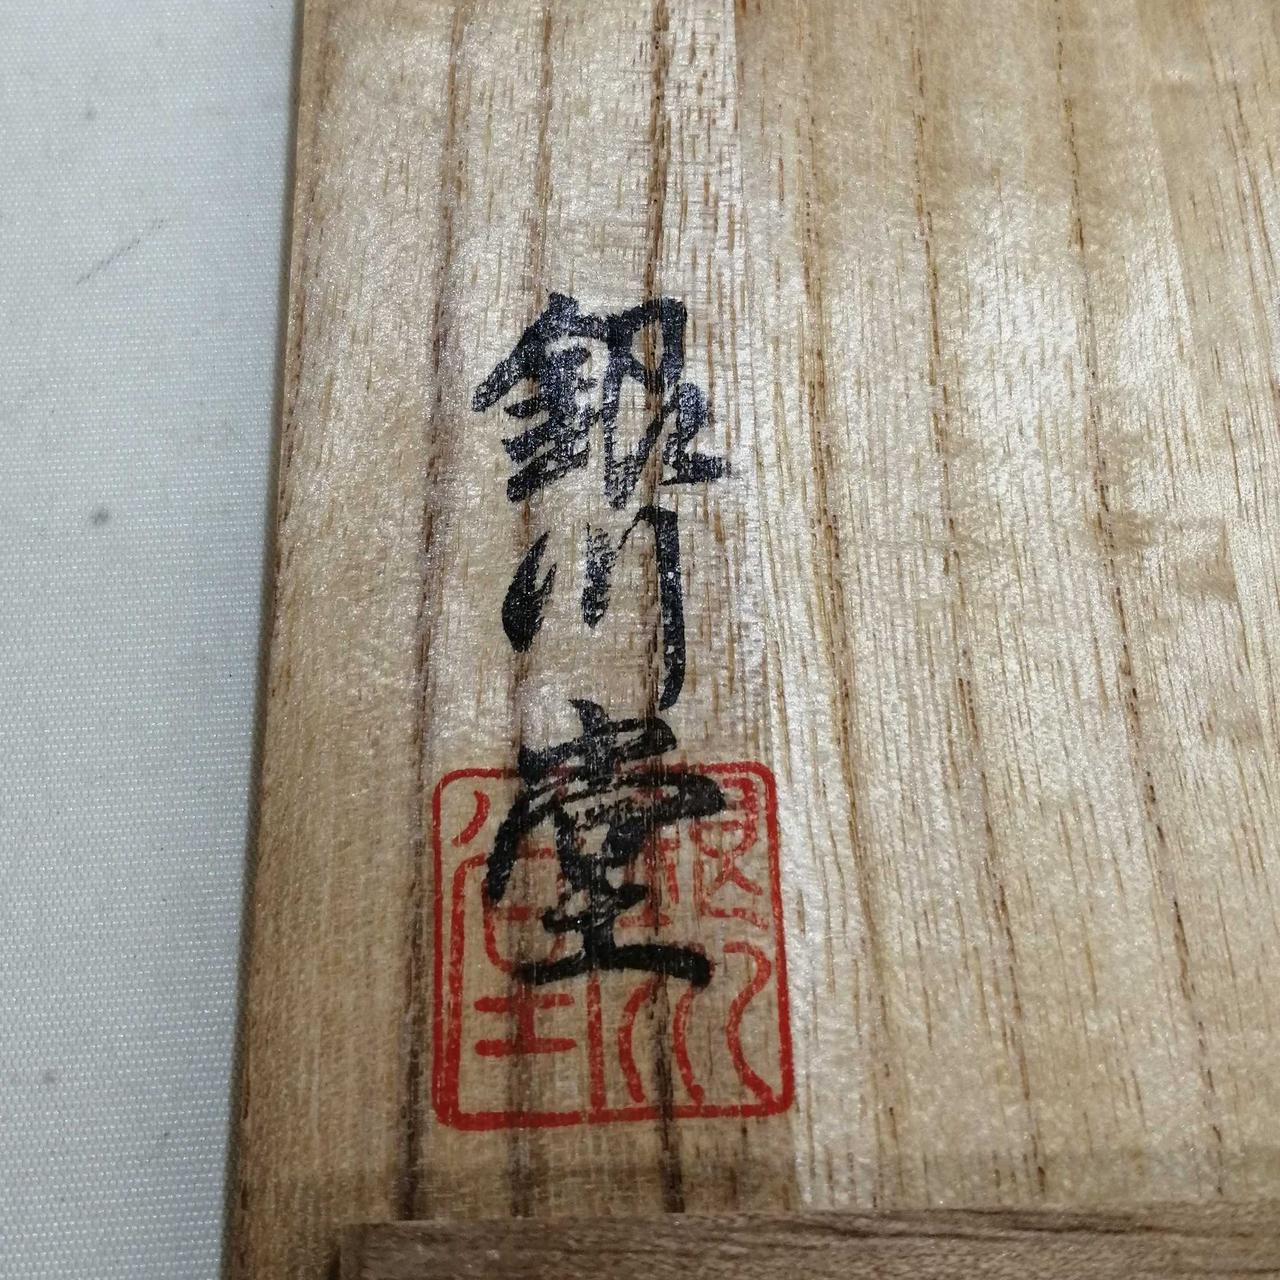 銀川堂
銀川堂